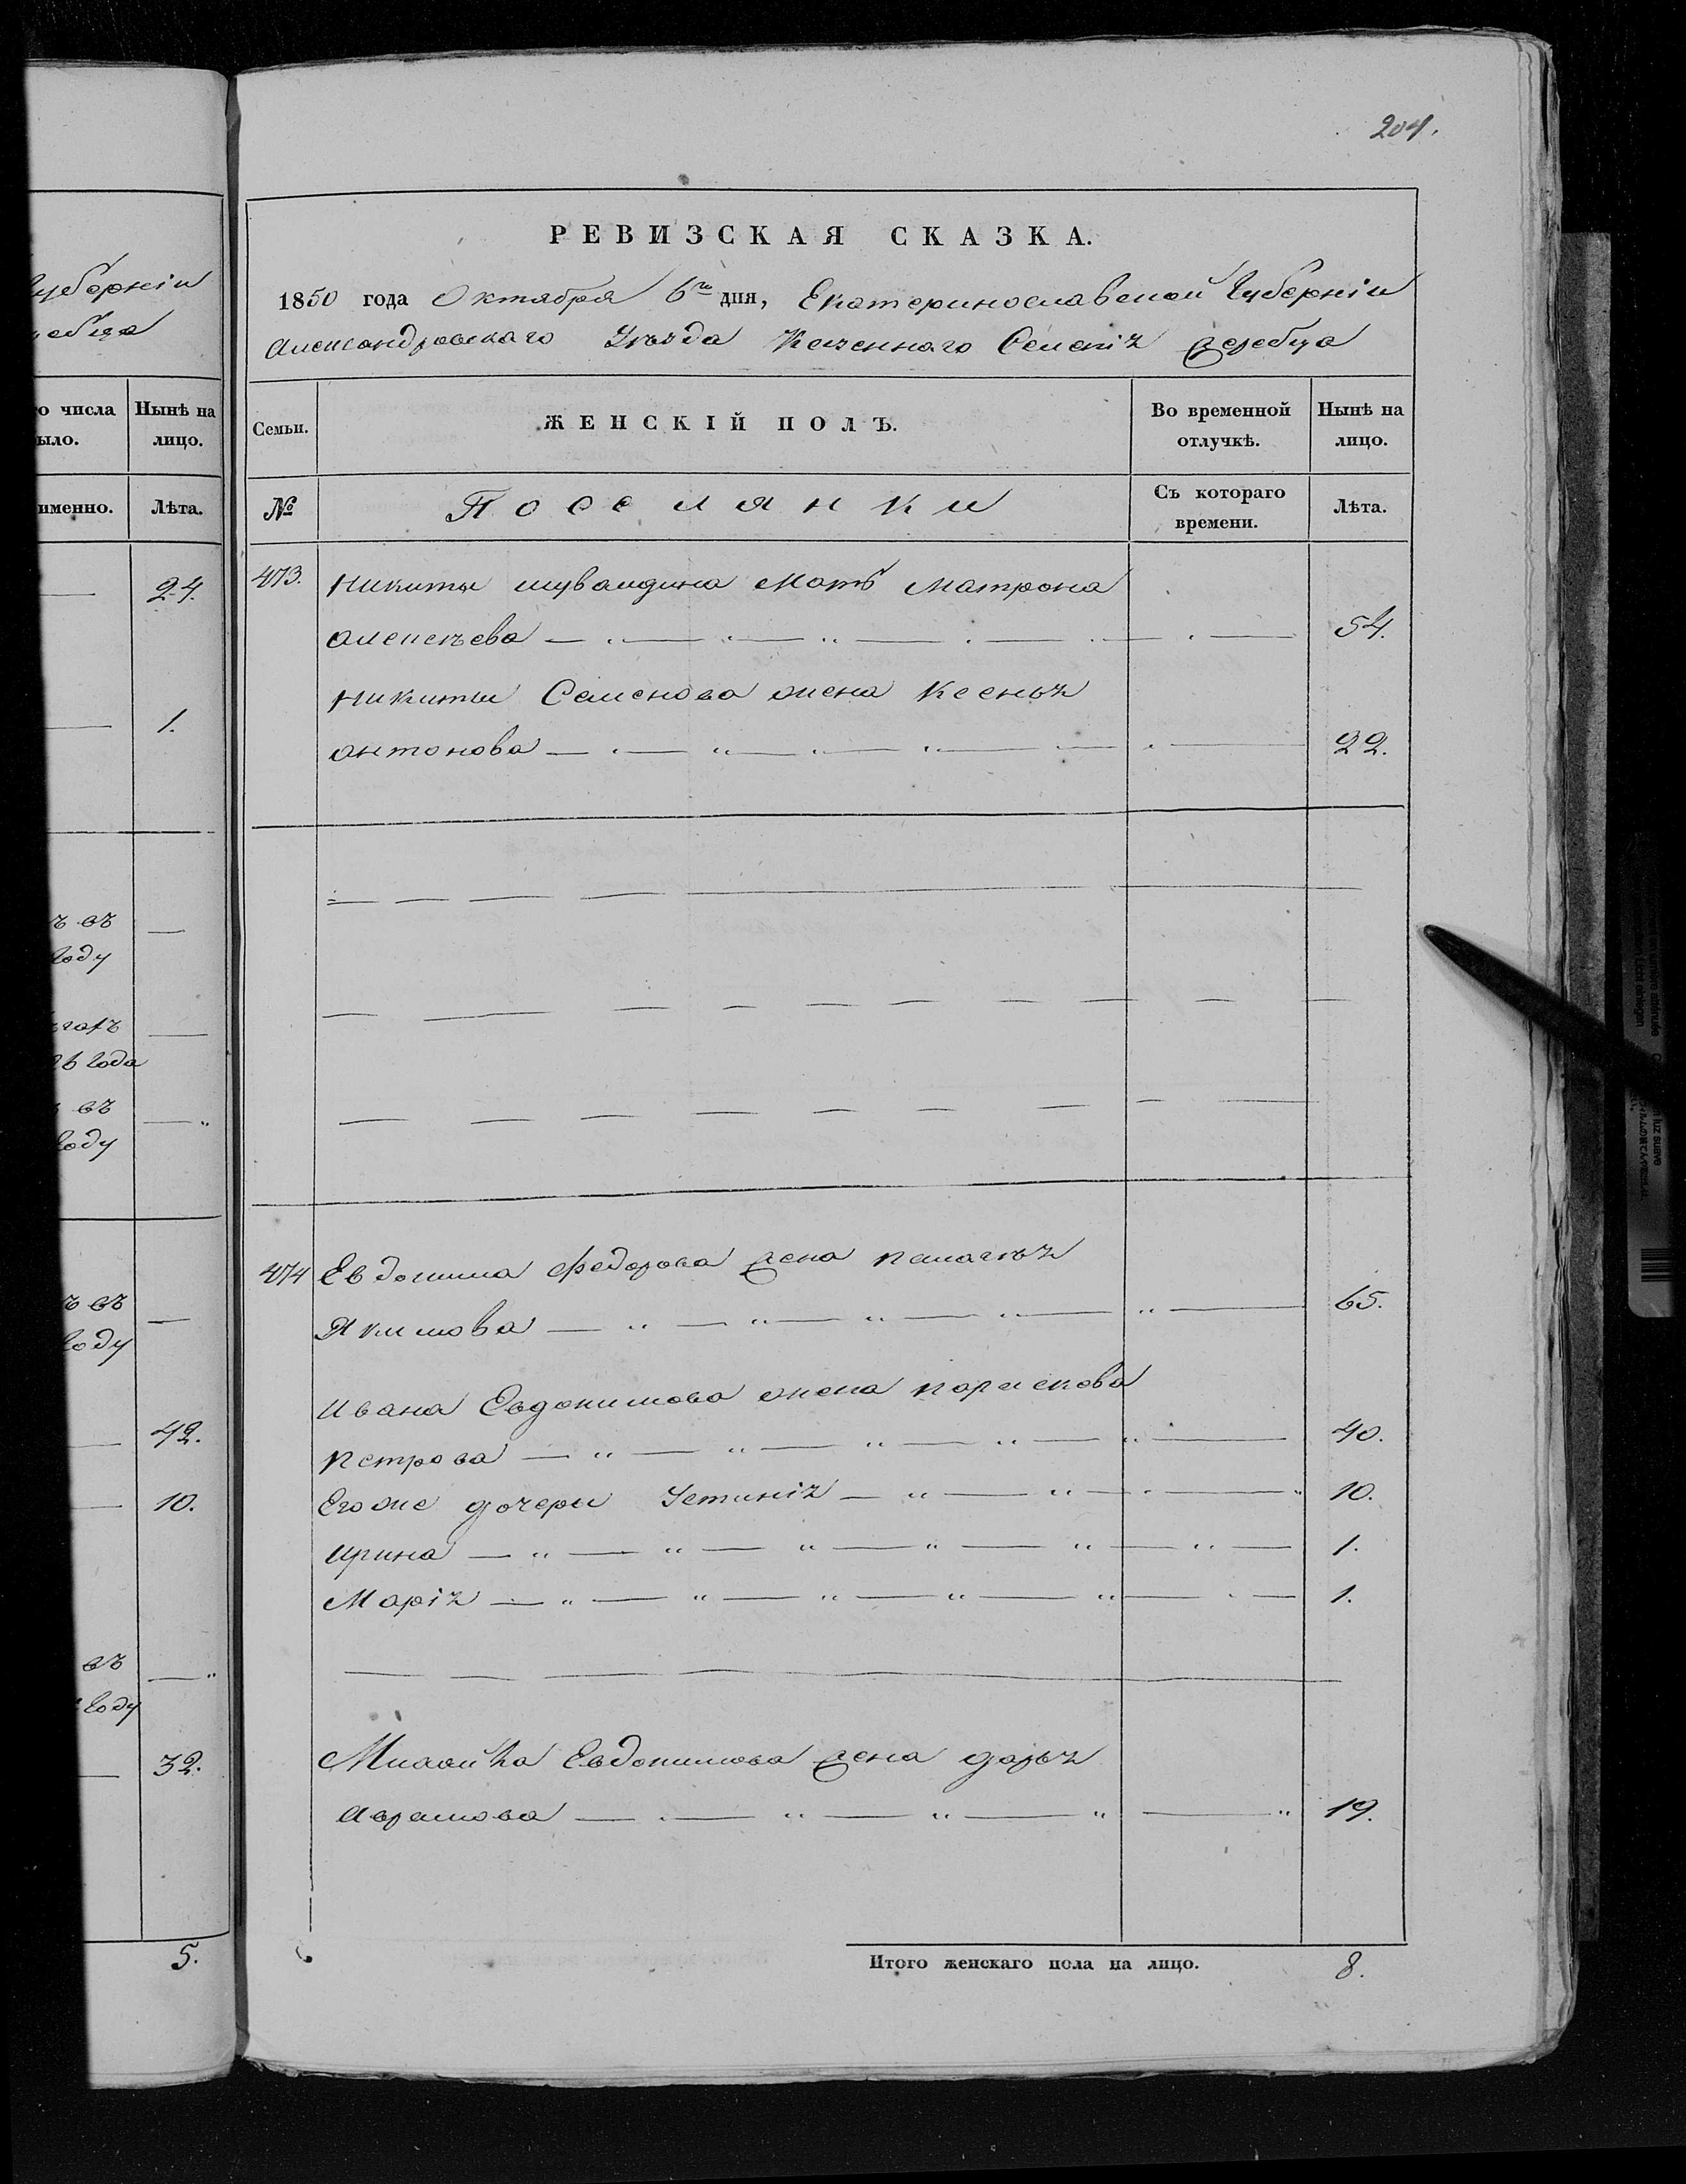 губерніи
ребца
го числа
было.
Нынѣ на
лицо.
именно.
Лѣта.
24.
1.
ъ въ
году
6 года
въ
году
ъ въ
году
42.
10.
въ
году
32.
5.
204.
РЕВИЗСКАЯ СКАЗКА.
1850 года Октября 6го дня, Екатеринославской Губерніи
Александровскаго Уѣзда Казеннаго Селенія Жеребца
Семьи.
ЖЕНСКІЙ ПОЛЪ.
Во временной
отлучкѣ.
Нынѣ на
лицо.
№
Поселянки
Съ котораго
времени.
Лѣта.
473.
Никиты Мать Матрона
Алексѣева 54.
Никиты Семенова жена Ксенья
Антонова 22.
474
Евдокима Федорова жена Пелагѣя
Якимова 65.
Ивана Евдокимова жена Парасковья
Петрова 40.
Его же дочери Устинія 10.
Ирина 1.
Марія 1.
Михайла Евдокимова жена Дарья
Аврамова 19.
Итого женскаго пола на лицо. 8.